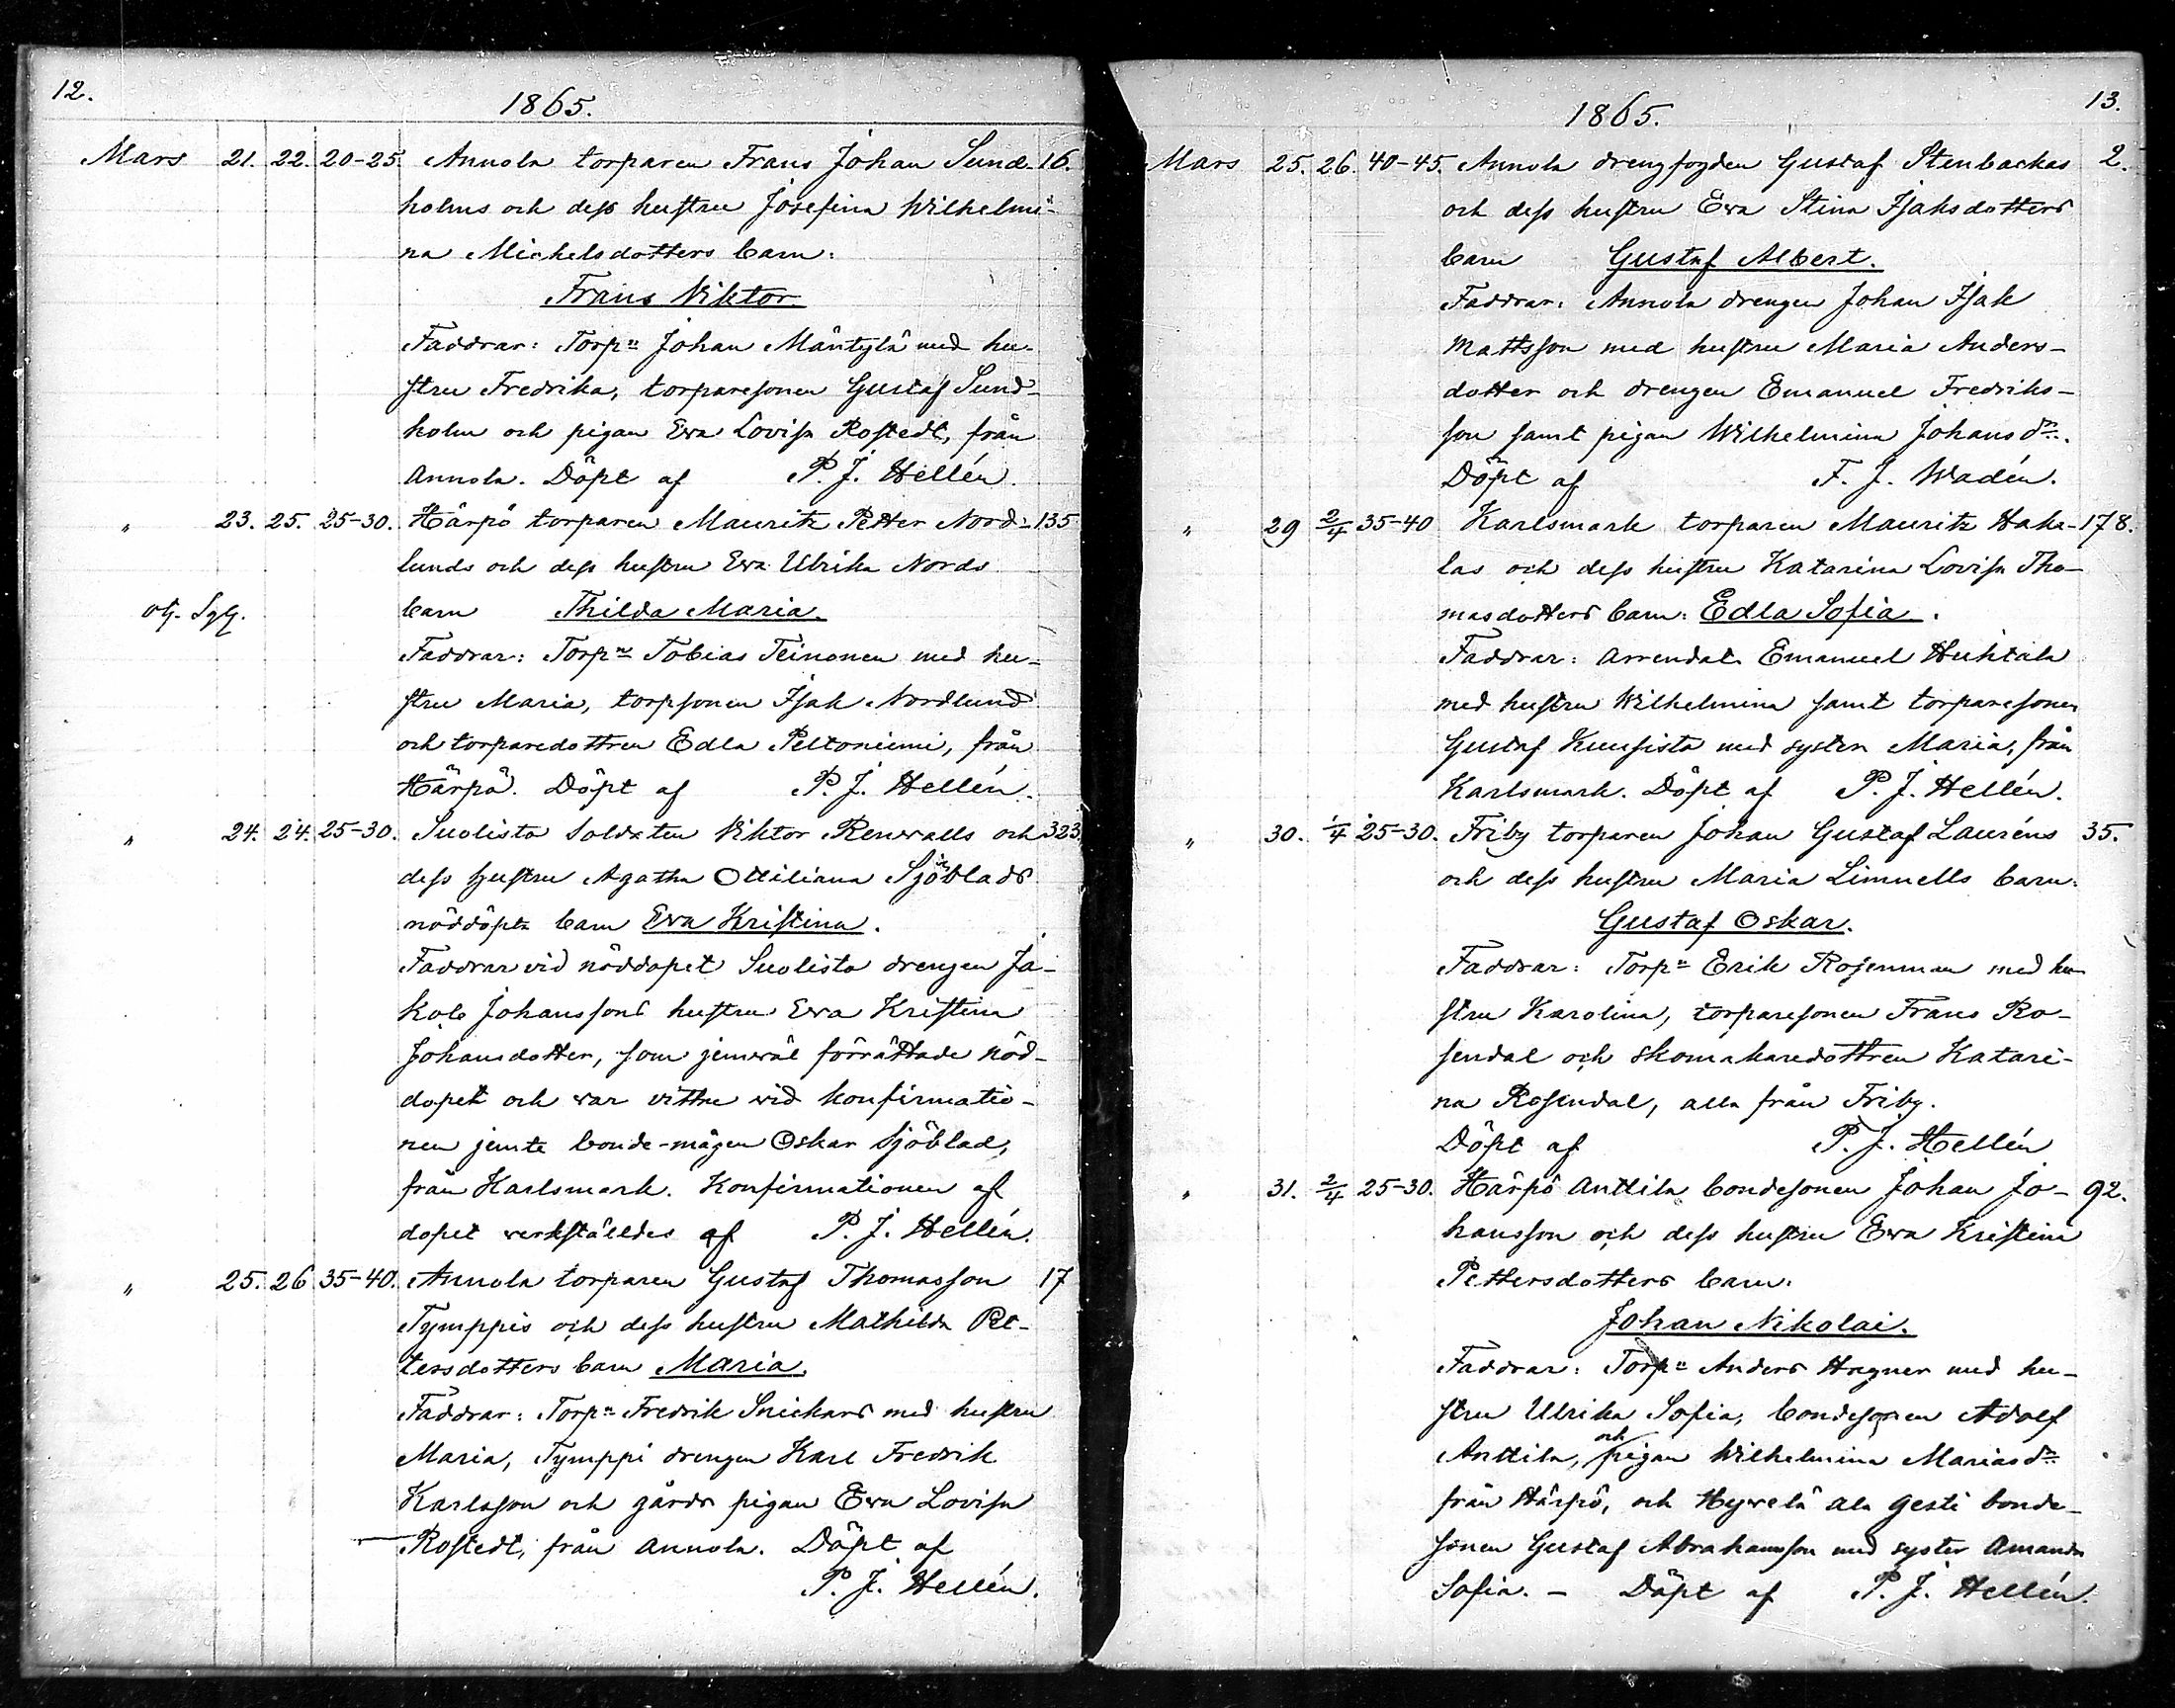 12.
1865.
Mars 21. 22. 20-25. Annola torparen Frans Johan Sund- 16.
holms och dess hustru Josefina Wilhelmi-
na Michelsdotters barn:
Frans Viktor.
Faddrar: Torpn Johan Mäntylä med hu-
stru Fredrika, torparesonen Gustaf Sund-
holm och pigan Eva Lovisa Rostedt, från
Annola. Döpt af P. J. Hellén.
" 23. 25. 25-30. Härpö torparen Mauritz Petter Nord- 135
lunds och dess hustru Eva Ulrika Nords
barn Thilda Maria.
Faddrar: Torpn Tobias Teinonen med hu-
stru Maria, torpsonen Isak Nordlund
och torparedottren Edla Peltoniemi, från
Härpö. Döpt af P. J. Hellén.
" 24. 24. 25-30. Suolisto soldaten Viktor Renvalls och 323.
dess hustru Agatha Ottiliana Sjöblads
nöddöpta barn Eva Kristina.
Faddrar vid nöddopet Suolisto drengen Ja-
kob Johanssons hustru Eva Kristina
Johansdotter, som jemväl förrättade nöd-
dopet och var vittne vid konfirmatio-
nen jemte bonde-mågen Oskar Sjöblad,
från Karlsmark. Konfirmationen af
dopet verkställdes af P. J. Hellén.
" 25. 26 35-40. Annola torparen Gustaf Thomasson 17
Tymppis och dess hustru Mathilda Pet-
tersdotters barn Maria.
Faddrar: Torpn Fredrik Snickars med hustru
Maria, Tymppi drengen Karl Fredrik
Karlsson och gårds pigan Eva Lovisa
Rostedt, från Annola. Döpt af
P. J. Hellén.
13.
1865.
Mars 25. 26. 40-45. Annola drengfogden Gustaf Stenbackas 2.
och dess hustru Eva Stina Isaksdotters
barn Gustaf Albert.
Faddrar: Annola drengen Johan Isak
Mattsson med hustru Maria Anders-
dotter och drengen Emanuel Fredriks-
son samt pigan Wilhelmina Johansdr.
Döpt af F. J. Wadén.
" 29 2/4 35-40 Karlsmark torparen Mauritz Haka- 178.
las och dess hustru Katarina Lovisa Tho-
masdotters barn: Edla Sofia.
Faddrar: arrendat. Emanuel Huhtala
med hustru Wilhelmina samt torparesonen
Gustaf Kuusisto med syster Maria, från
Karlsmark. Döpt af P. J. Hellén.
" 30. 1/4 25-30. Friby torparen Johan Gustaf Lauréns 35.
och dess hustru Maria Limnells barn:
Gustaf Oskar.
Faddrar: Torpn Erik Rosenman med hu-
stru Karolina, torparesonen Frans Ro-
sendal och skomakaredottren Katari-
na Rosendal, alla från Friby.
Döpt af P. J. Hellén
" 31. 2/4 25-30. Härpö Anttila bondesonen Johan Jo- 92.
hansson och dess hustru Eva Kristina
Pettersdotters barn:
Johan Nikolai.
Faddrar: Torpn Anders Hagner med hu-
stru Ulrika Sofia, bondesonen Adolf
Anttila, och pigan Wilhelmina Mariasdr
från Härpö, och Hyvelä Ala Gesti bonde-
sonen Gustaf Abrahamsson med syster Amanda
Sofia. - Döpt af P. J. Hellén.